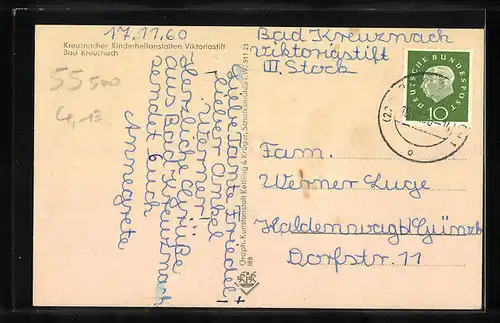 17.11.60
Kreuznacher Kinderheilanstalten Viktoriastift
Bad Kreuznach
55500
4,-
Liebe Tante Friedel +
lieber Onkel
Werner!
Herzliche Grüße
aus Bad-Kreuznach
sendet Euch
Annegrete
Graph. Kunstanstalt Kettling & Krüger, Schalksmühle i.W. 511 23
188
Bad Kreuznach
Viktoriastift
III. Stock
DEUTSCHE BUNDESPOST
10
Fam.
Werner Luge
Haldenwag b/Günzb.
Dorfstr. 11